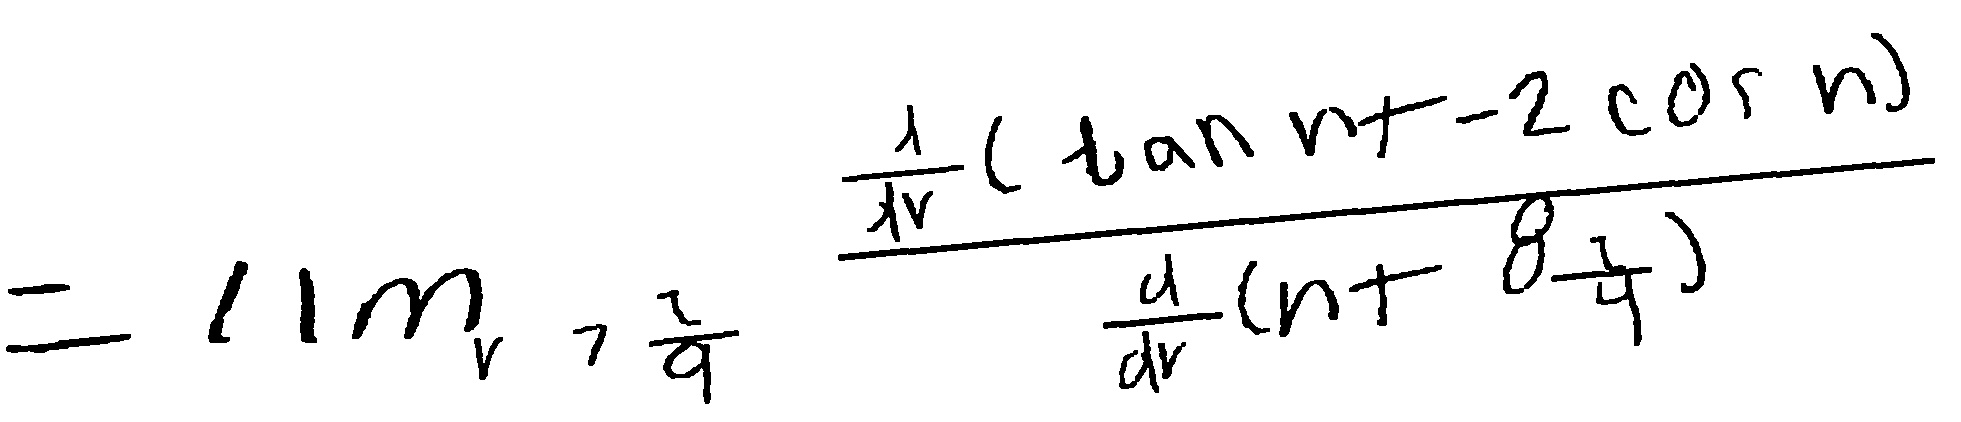 = lim_{r → \frac{π}{4}} \frac{\frac{d}{dr}(tan r + -2 cos r)}{\frac{d}{dr}(r + 8\frac{π}{4})}